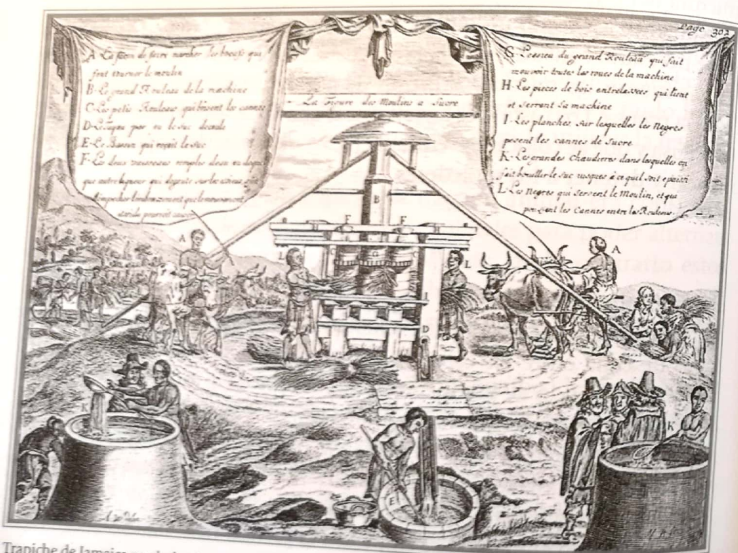 Page 302
A. La façon de faire marcher les boeufs qui
font tourner le moulin
B. Le grand Rouleau de la machine
C. Les petis Rouleaus qui brisent les cannes
D. par ou le suc decoule
E. Le qui reçoit le suc
F. Les deux
que autre liqueur qui degoute sur les
-La Figure des Moulins a Sucre
G. L'essieu du grand Rouleau qui fait
mouvoir toutes les roues de la machine
H. Les pieces de bois entrelassees qui tient
et serrent la machine
I. Les planches sur lesquelles les Negres
posent les cannes de Sucre
K. Les grandes chaudieres dans lesquelles on
fait bouillir le suc jusques à ce qu'il soit epaissi
L. Les Negres qui servent le Moulin, et qui
les Cannes entre les Rouleaus
A
B
F
F
G
L
L
A
I
D
K
Trapiche de Jamaica